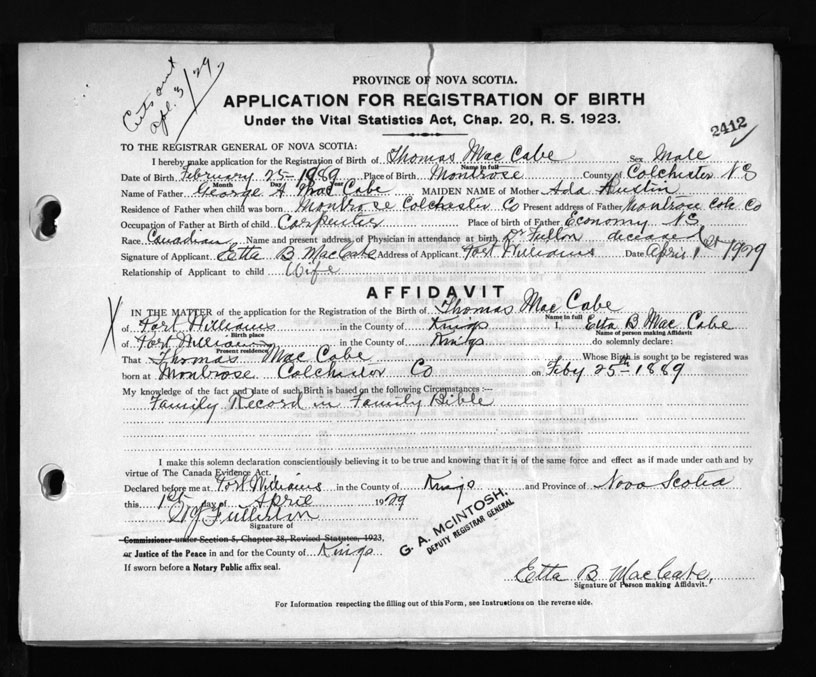 Certs sent
Apl. 3/29.
PROVINCE OF NOVA SCOTIA.
APPLICATION FOR REGISTRATION OF BIRTH
Under the Vital Statistics Act, Chap. 20, R. S. 1923.
2412
TO THE REGISTRAR GENERAL OF NOVA SCOTIA:
I hereby make application for the Registration of Birth of Thomas Mac Cabe Sex Male
Name in full
Date of Birth February 25 1889 Place of Birth Montrose County of Colchester N S
Month
Name of Father George A Mac Cabe MAIDEN NAME of Mother Ada Austin
Residence of Father when child was born Montrose Colchester Co Present address of Father Montrose Colc. Co
Occupation of Father at Birth of child Carpenter Place of Birth of Father Economy N.S
Race Canadian Name and present address of Physician in attendance at birth Dr Fulton deceased
Signature of Applicant Etta B MacCabe Address of Applicant Port Williams Date April 1st 1929
Relationship of Applicant to child Wife
AFFIDAVIT
IN THE MATTER of the application for the Registration of Birth of Thomas Mac Cabe
Name in full
X of Port Williams in the County of Kings I, Etta B Mac Cabe
Birth place Name of person making Affidavit
of Port Williams in the County of Kings do solemnly declare:
Present residence
That Thomas Mac Cabe Whose Birth is sought to be registered was
born at Montrose Colchester Co on Feby 25th 1889
My knowledge of the fact and date of such Birth is based on the following Circumstances :—
Family Record in Family Bible
I make this solemn declaration conscientiously believing it to be true and knowing that it is of the same force and effect as if made under oath and by
virtue of The Canada Evidence Act.
Declared before me at Port Williams in the County of Kings and Province of Nova Scotia
this 1st day of April 1929
Fullerton
Signature of
G. A. McINTOSH,
DEPUTY REGISTRAR GENERAL
Commissioner under Section 5, Chapter 38, Revised Statutes, 1923,
or Justice of the Peace in and for the County of Kings
If sworn before a Notary Public affix seal.
Etta B MacCabe.
Signature of Person making Affidavit.
For Information respecting the filling out of this Form, see Instructions on the reverse side.